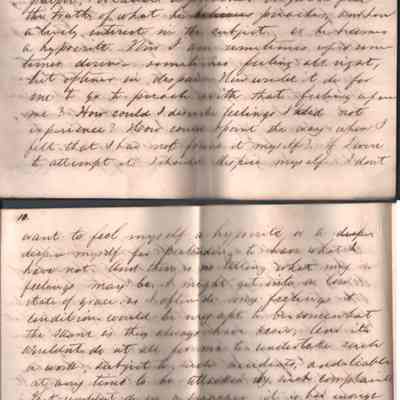 the truth of what he preaches, and have
a lively interest in the subject, or he becomes
a hypocrite. Now I am sometimes up & some
times down - sometimes feeling all right,
but oftener in despair. How would it do for
me to go to preach with that feeling upon
me? How could I describe feelings I had not
experience? How could I point the way when I
felt that I had not found it myself? If I were
to attempt it I should despise myself. I don't
10.
want to feel myself a hypocrite or a
despise myself for pretending to have what I
have not. And there is no telling what my
feelings may be. I might get into a low
state of grace as I often do my feelings &
condition would be very apt to be somewhat
the same as they always have been, and it
wouldn't do at all for me to undertake such
a work, subject to such accidents, and liable
at any time to be attacked by such complaints
That wouldn't do in a preacher, it is bad enough